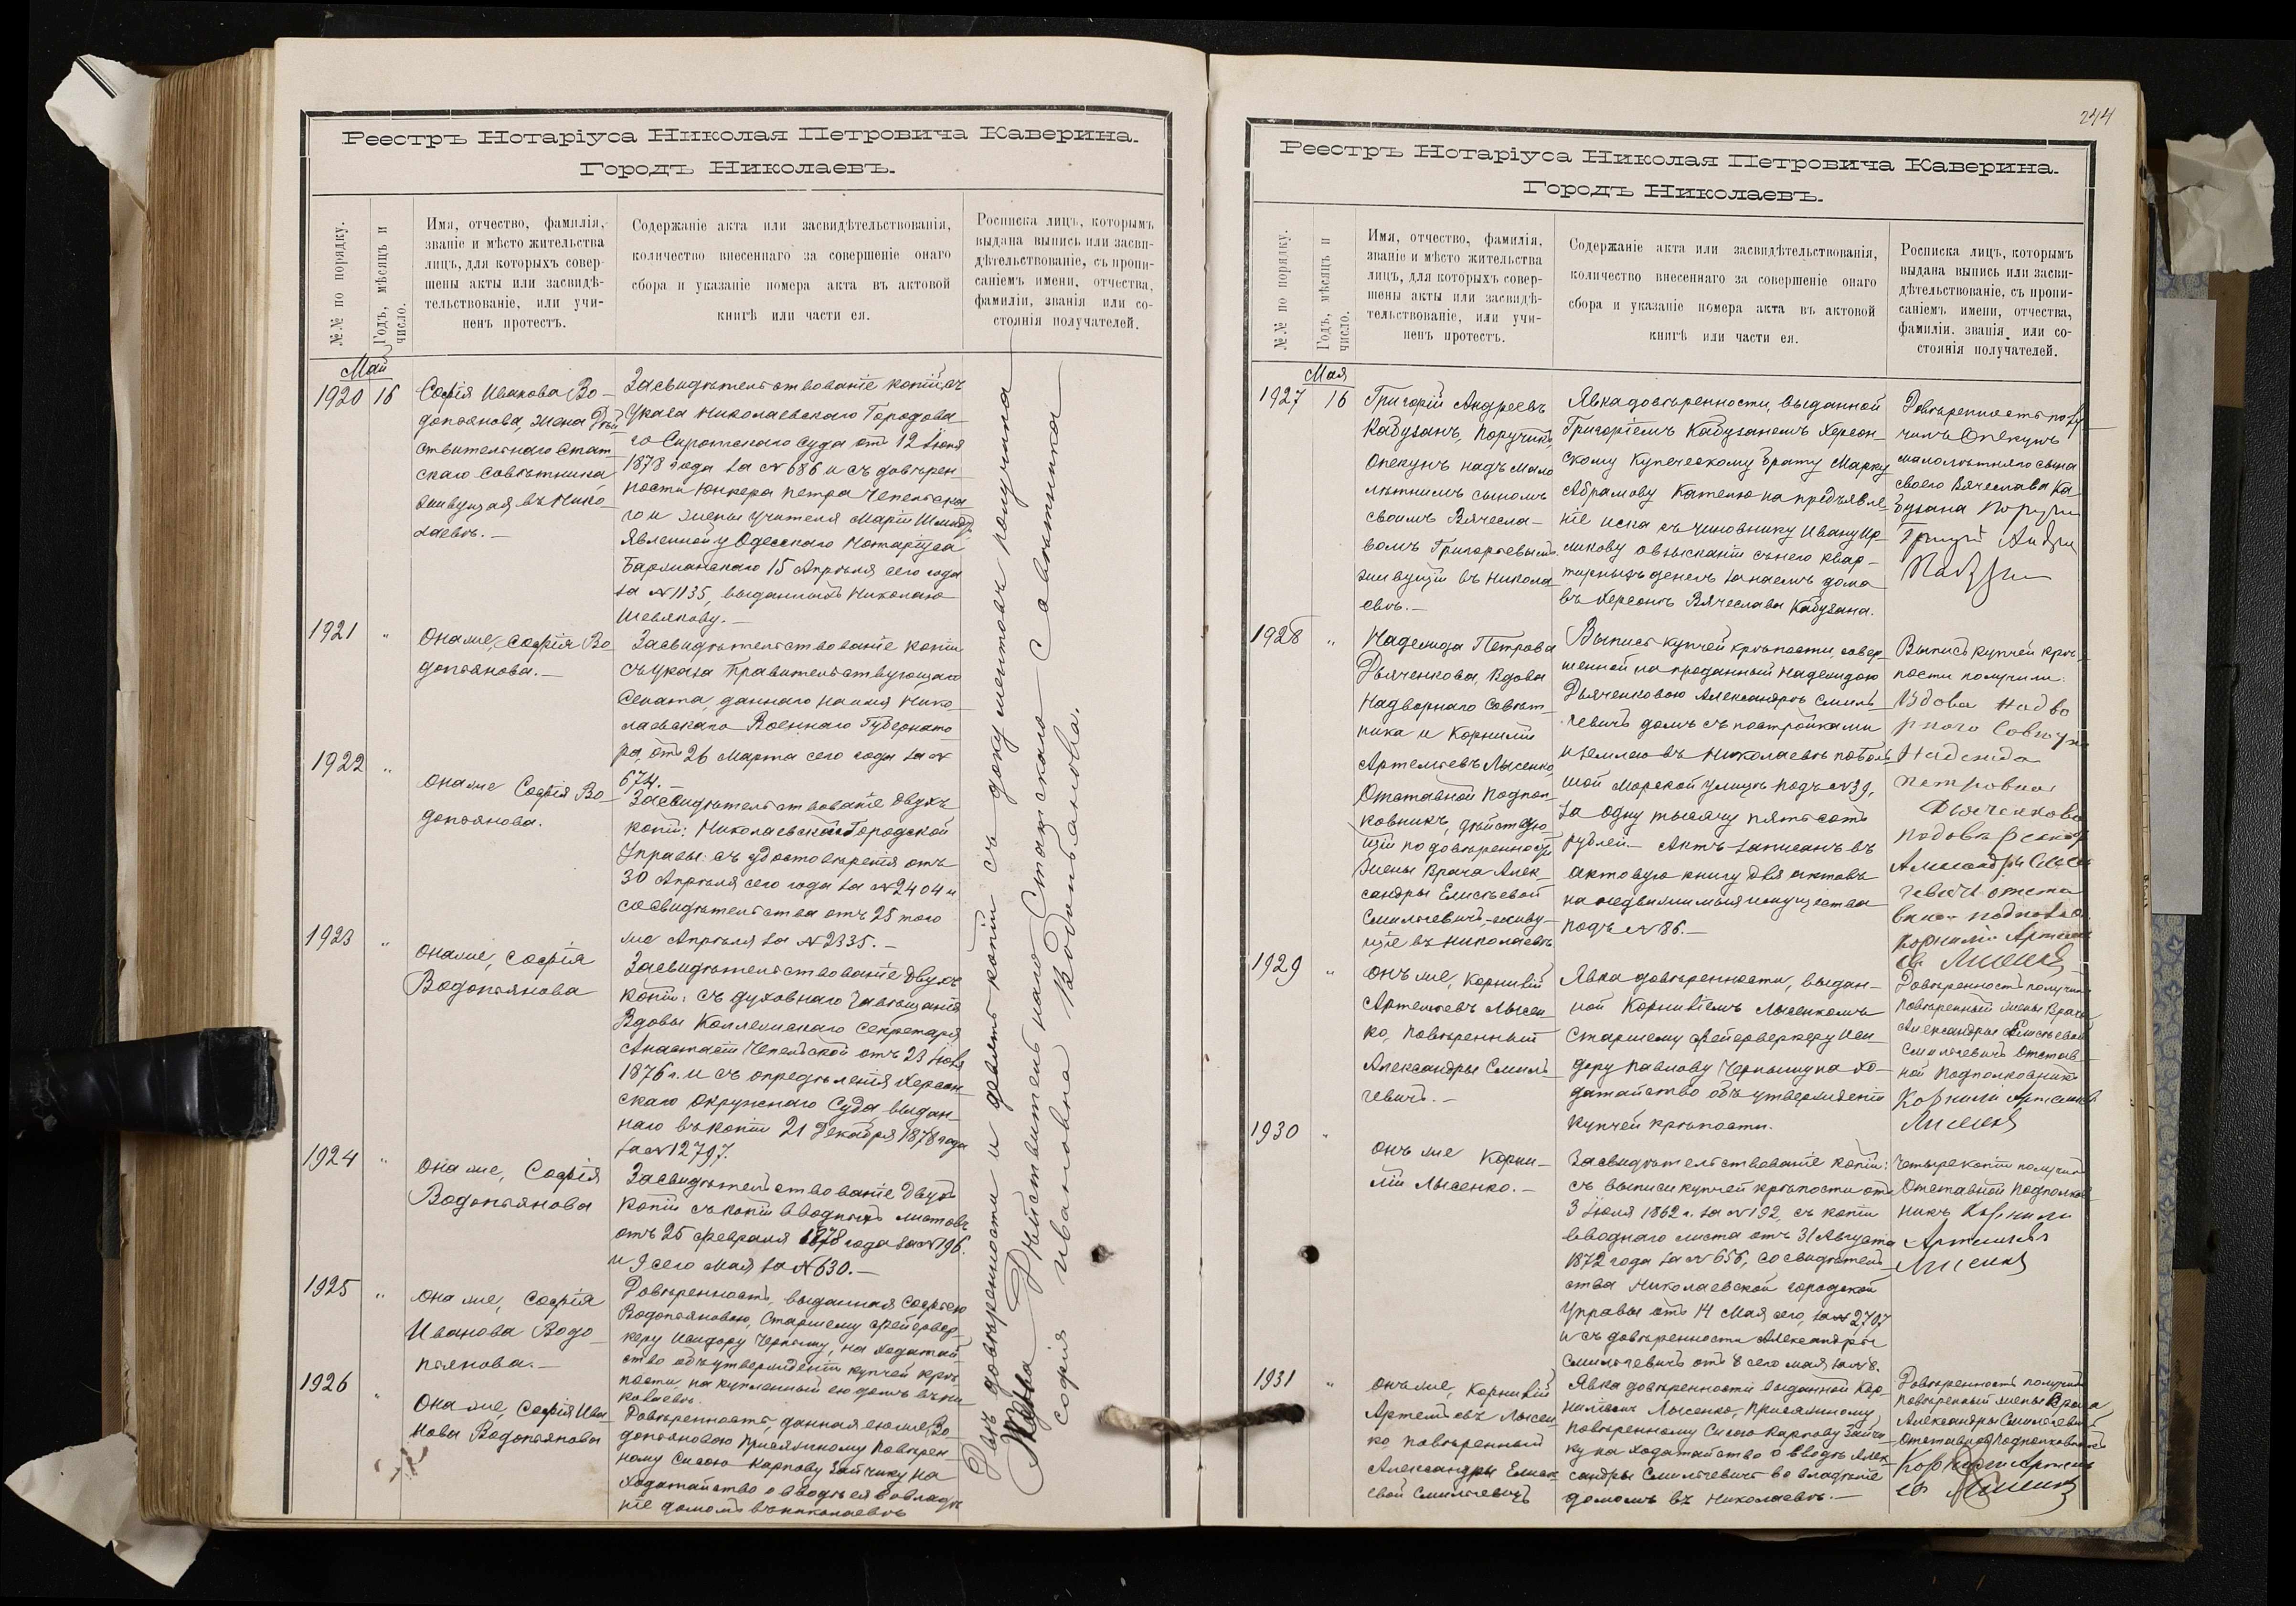 Реестръ Нотаріуса Николая Петровича Каверина.
Городъ Николаевъ.
№№ по порядку.
Годъ, мѣсяцъ и
число.
Имя, отчество, фамилія,
званіе и мѣсто жительства
лицъ, для которыхъ совер-
шены акты или засвидѣ-
тельствованіе, или учи-
ненъ протестъ.
Содержаніе акта или засвидѣтельствованія,
количество внесеннаго за совершеніе онаго
сбора и указаніе номера акта въ актовой
книгѣ или части ея.
Росписка лицъ, которымъ
выдана выпись или засви-
дѣтельствованіе, съ пропи-
саніемъ имени, отчества,
фамиліи, званія или со-
стоянія получателей.
Май
1920 16
Софія Иванова Во-
допьянова, жена Дѣй-
ствительнаго Стат-
скаго Совѣтника
живущая въ Нико-
лаевѣ.—
Засвидѣтельствованіе копій: съ
Указа Николаевскаго Городова-
го Сиротскаго Суда отъ 12 Іюня
1878 года за № 686 и съ довѣрен-
ности Юнкера Петра Чепельска-
го и жены учителя Маріи
явленной у Одесскаго Нотаріуса
Баржанскаго 15 Апрѣля сего года
за № 1135, выданныхъ Николаю
Шевлякову.—
1921 "
Она же, Софія Во-
допьянова.—
Засвидѣтельствованіе копіи
съ указа Правительствующаго
Сената, даннаго на имя Нико-
лаевскаго Военнаго Губернато-
ра, отъ 26 Марта сего года за №
674.—
1922 "
Она же Софія Во-
допьянова.
Засвидѣтельствованіе двухъ
копій: Николаевской Городской
Управы: съ удостовѣренія отъ
30 Апрѣля сего года за № 2404 и
со свидѣтельства отъ 25 того
же Апрѣля за № 2335.—
1923 "
Она же, Софія
Водопьянова
Засвидѣтельствованіе двухъ
копій: съ духовнаго завѣщанія
Вдовы Коллежскаго Секретаря
Анастасіи Чепельской отъ 23
1876 г. и съ опредѣленія Херсон-
скаго Окружнаго Суда выдан-
наго въ копіи 21 Декабря 1878 года
за № 12797.
1924 "
Она же, Софія
Водопьянова
Засвидѣтельствованіе двухъ
копій съ копій вводныхъ листовъ
отъ 25 февраля 1878 года за № 196.
и 9 сего Мая за № 630.—
1925 "
Она же, Софія
Иванова Водо-
пьянова.—
Довѣренность, выданная Софьею
Водопьяновою, Старшему фейервер-
керу Исидору Черныму, на ходатай-
ство объ утвержденіи купчей крѣ-
пости, на купленный ею домъ въ Ни-
колаевѣ.
1926 "
Она же, Софія Ива-
нова Водопьянова
Довѣренность, данная ею же, Во-
допьяновою Присяжному Повѣрен-
ному Сысою Карпову Зайчику на
ходатайство о вводѣ ея во владѣ-
ніе домомъ въ Николаевѣ
Двѣ довѣренности и девять копій съ документовъ получила
Жена Дѣйствительнаго Статскаго Совѣтника
Софія Ивановна Водопьянова.
244
Реестръ Нотаріуса Николая Петровича Каверина.
Городъ Николаевъ.
№№ по порядку.
Годъ, мѣсяцъ и
число.
Имя, отчество, фамилія,
званіе и мѣсто жительства
лицъ, для которыхъ совер-
шены акты или засвидѣ-
тельствованіе, или учи-
ненъ протестъ.
Содержаніе акта или засвидѣтельствованія,
количество внесеннаго за совершеніе онаго
сбора и указаніе номера акта въ актовой
книгѣ или части ея.
Росписка лицъ, которымъ
выдана выпись или засви-
дѣтельствованіе, съ пропи-
саніемъ имени, отчества,
фамиліи. званія или со-
стоянія получателей.
Мая
1927 16
Григорій Андреевъ
Кабузанъ, Поручикъ,
Опекунъ надъ мало-
лѣтнимъ сыномъ
своимъ Вячесла-
вомъ Григорьевымъ
живущій въ Никола-
евѣ.—
Явка довѣренности, выданной
Григоріемъ Кабузаномъ Херсон-
скому Купеческому брату Марку
Абрамову Кателю на предъявле-
ніе иска къ чиновнику Ивану
о взысканіи съ него квар-
тирныхъ денегъ за наемъ дома
въ Херсонѣ Вячеслава Кабузана.
Довѣренность полу-
чилъ Опекунъ
малолѣтняго сына
своего Вячеслава Ка-
бузана
Григорій
1928 "
Надежда Петрова
Дьяченкова, Вдова
Надворнаго Совѣт-
ника и Корнилій
Артемьевъ Лысенко,
Отставной Подпол-
ковникъ, дѣйствую-
щій по довѣренности
жены Врача Алек-
сандры Елисѣевой
Смильгевичъ, живу-
щіе въ Николаевѣ
Выпись купчей крѣпости, совер-
шенной на проданный Надеждою
Дьяченковою Александрѣ Смиль-
гевичъ домъ съ постройками
и землею въ Николаевѣ по Боль-
шой Морской улицѣ подъ № 39,
за одну тысячу пятьсотъ
рублей.— Актъ записанъ въ
актовую книгу для актовъ
на недвижимыя имущества
подъ № 86.—
Выпись купчей крѣ-
пости получили:
Вдова Надво
рного
Надежда
Петровна
Дьяченкова
Александр
Корнилій Артемь
евъ Лысенко
1929 "
Онъ же, Корнилій
Артемьевъ Лысен-
ко, Повѣренный
Александры Смиль-
гевичъ.—
Явка довѣренности, выдан-
ной Корниліемъ Лысенкомъ
Старшему фейерверкеру Иси-
дору Павлову Черныму на хо-
датайство объ утвержденіи
купчей крѣпости.
Довѣренность получилъ
повѣренный жены Врача
Александры Елисѣевой
Смильгевичъ Отстав-
ной Подполковникъ
Корнилій Артемьевъ
Лысенко
1930 "
Онъ же Корни-
лій Лысенко.—
Засвидѣтельствованіе копій:
съ выписи купчей крѣпости отъ
3 Іюля 1862 г. за № 192, съ копіи
вводнаго листа отъ 31 Августа
1872 года за № 656, со свидѣтель-
ства Николаевской городской
Управы отъ 14 Мая сего, за № 2797
и съ довѣренности Александры
Смильгевичъ отъ 8 сего мая за № 8.
Четыре копіи получилъ
Отставной Подполков-
никъ Корнилій
Артемьевъ
Лысенко
1931 "
Онъ же, Корнилій
Артемьевъ Лысен-
ко, повѣренный
Александры Елисѣ-
евой Смильгевичъ
Явка довѣренности выданной Кор-
ниліемъ Лысенко, Присяжному
Повѣренному Сысою Карпову Зайчи-
ку на ходатайство о вводѣ Алек-
сандры Смильгевичъ во владѣніе
домомъ въ Николаевѣ.—
Довѣренность получилъ
повѣренный жены Врача
Александры Смильгевичъ
Отставной Подполковникъ
Корнилій Артемь
евъ Лысенко